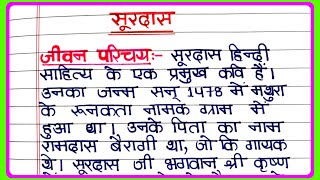 सूरदास
जीवन परिचय:- सूरदास हिन्दी
साहित्य के एक प्रमुख कवि हैं।
उनका जन्म सन् 1478 में मथुरा
के रूनकता नामक ग्राम से
हुआ था। उनके पिता का नाम
रामदास बैरागी था, जो कि गायक
थे। सूरदास जी भगवान श्री कृष्ण